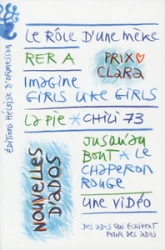 ÉDITIONS HÉLOÏSE D'ORMESSON
LE RÔLE D'UNE MÈRE
RER A
PRIX
CLARA
IMAGINE
GIRLS LIKE GIRLS
LA PIE * CHILI 73
NOUVELLES
D'ADOS
JUSQU'AU
BOUT * LE
CHAPERON
ROUGE
UNE VIDÉO
DES ADOS QUI ÉCRIVENT
POUR DES ADOS